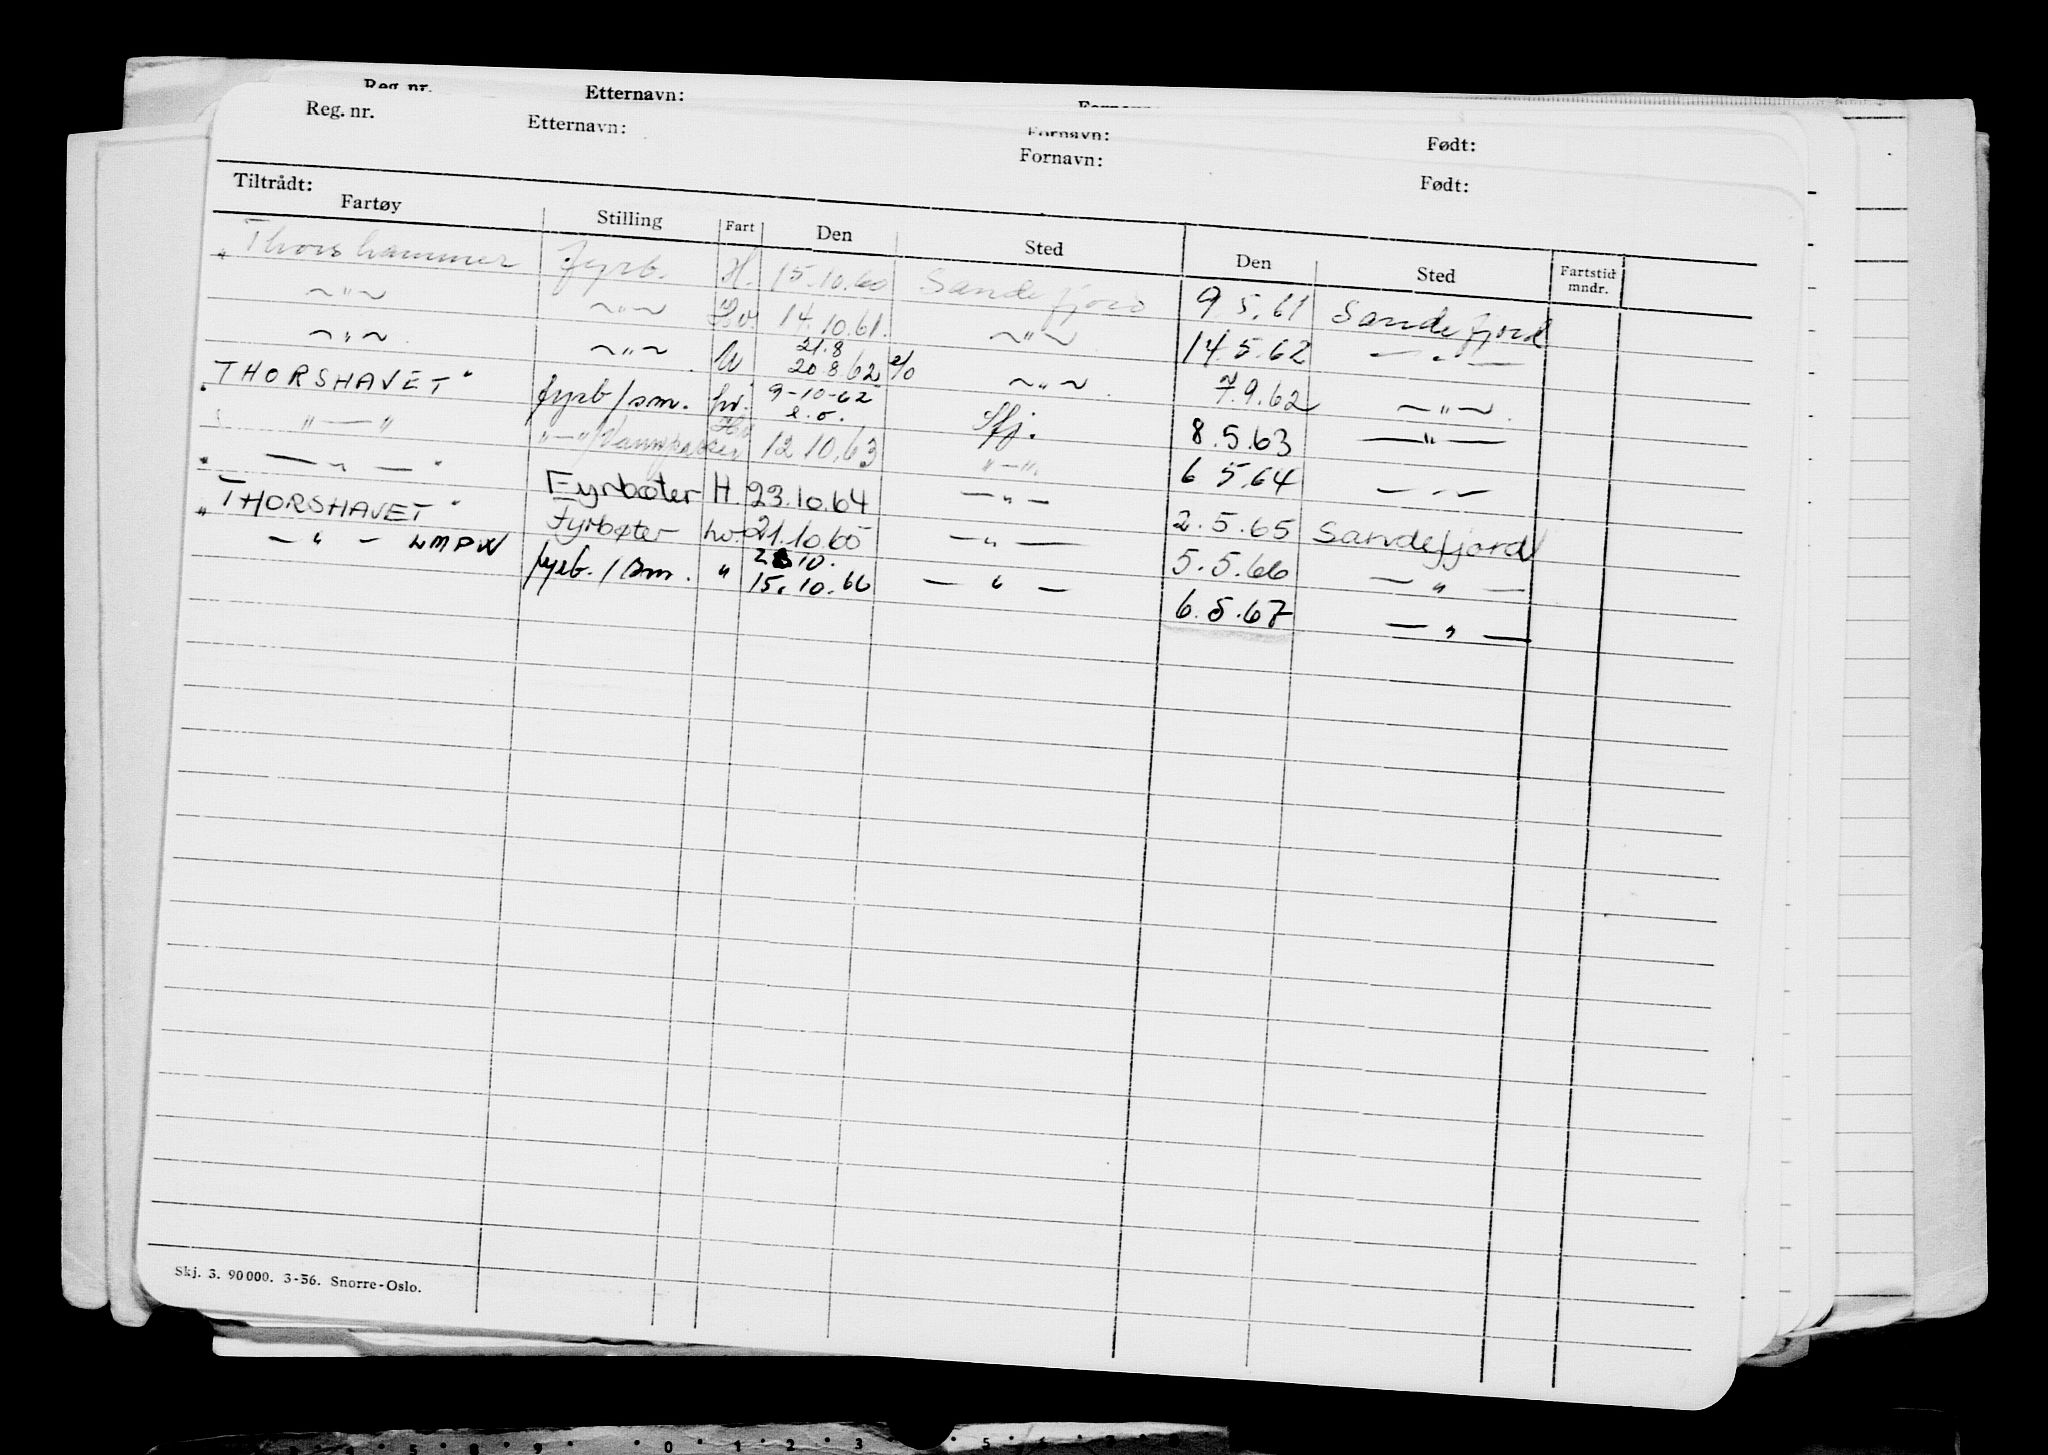 Reg. nr. Etternavn:
Reg. nr. Etternavn: Fornavn: Født:
Fornavn: Født:
Tiltrådt:
Fartøy Stilling Fart Den Sted Den Sted Fartstid mndr.
"Thorshammer fyrb. H. 15.10.60 Sandefjord 9 5.61 Sandefjord
~"~ ~"~ Hv. 14.10.61. ~"~ 14.5.62 — " —
~"~ ~"~ U 21.8 20 8.62 e/o ~"~ 7.9.62 ~"~
"THORSHAVET" fyrb/sm. hv. 9-10-62 e.o. Sfj. 8.5.63 — " —
" — " " — " Hv 12 10.63 " — " 6 5.64 — " —
" — " — " Fyrbøter H. 23.10.64 — " — 2.5.65 Sandefjord
"THORSHAVET" Fyrbøter hv. 21.10.65 — " — 5.5.66 — " —
— " — LMPW fyrb./Sm. " 28 10. 15.10.66 — " — 6.5.67 — " —
Skj. 3. 90 000. 3-56. Snorre-Oslo.